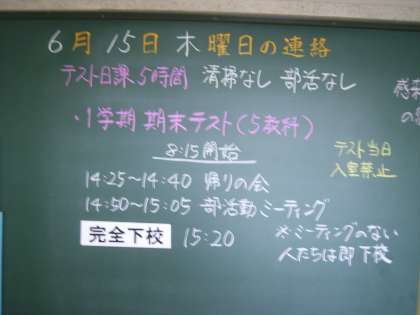 6月15日木曜日の連絡
テスト日課5時間 清掃なし 部活なし
・1学期 期末テスト(5教科)
8:15開始
テスト当日
入室禁止
14:25〜14:40 帰りの会
14:50〜15:05 部活動ミーティング
完全下校 15:20
※ミーティングのない
人たちは即下校